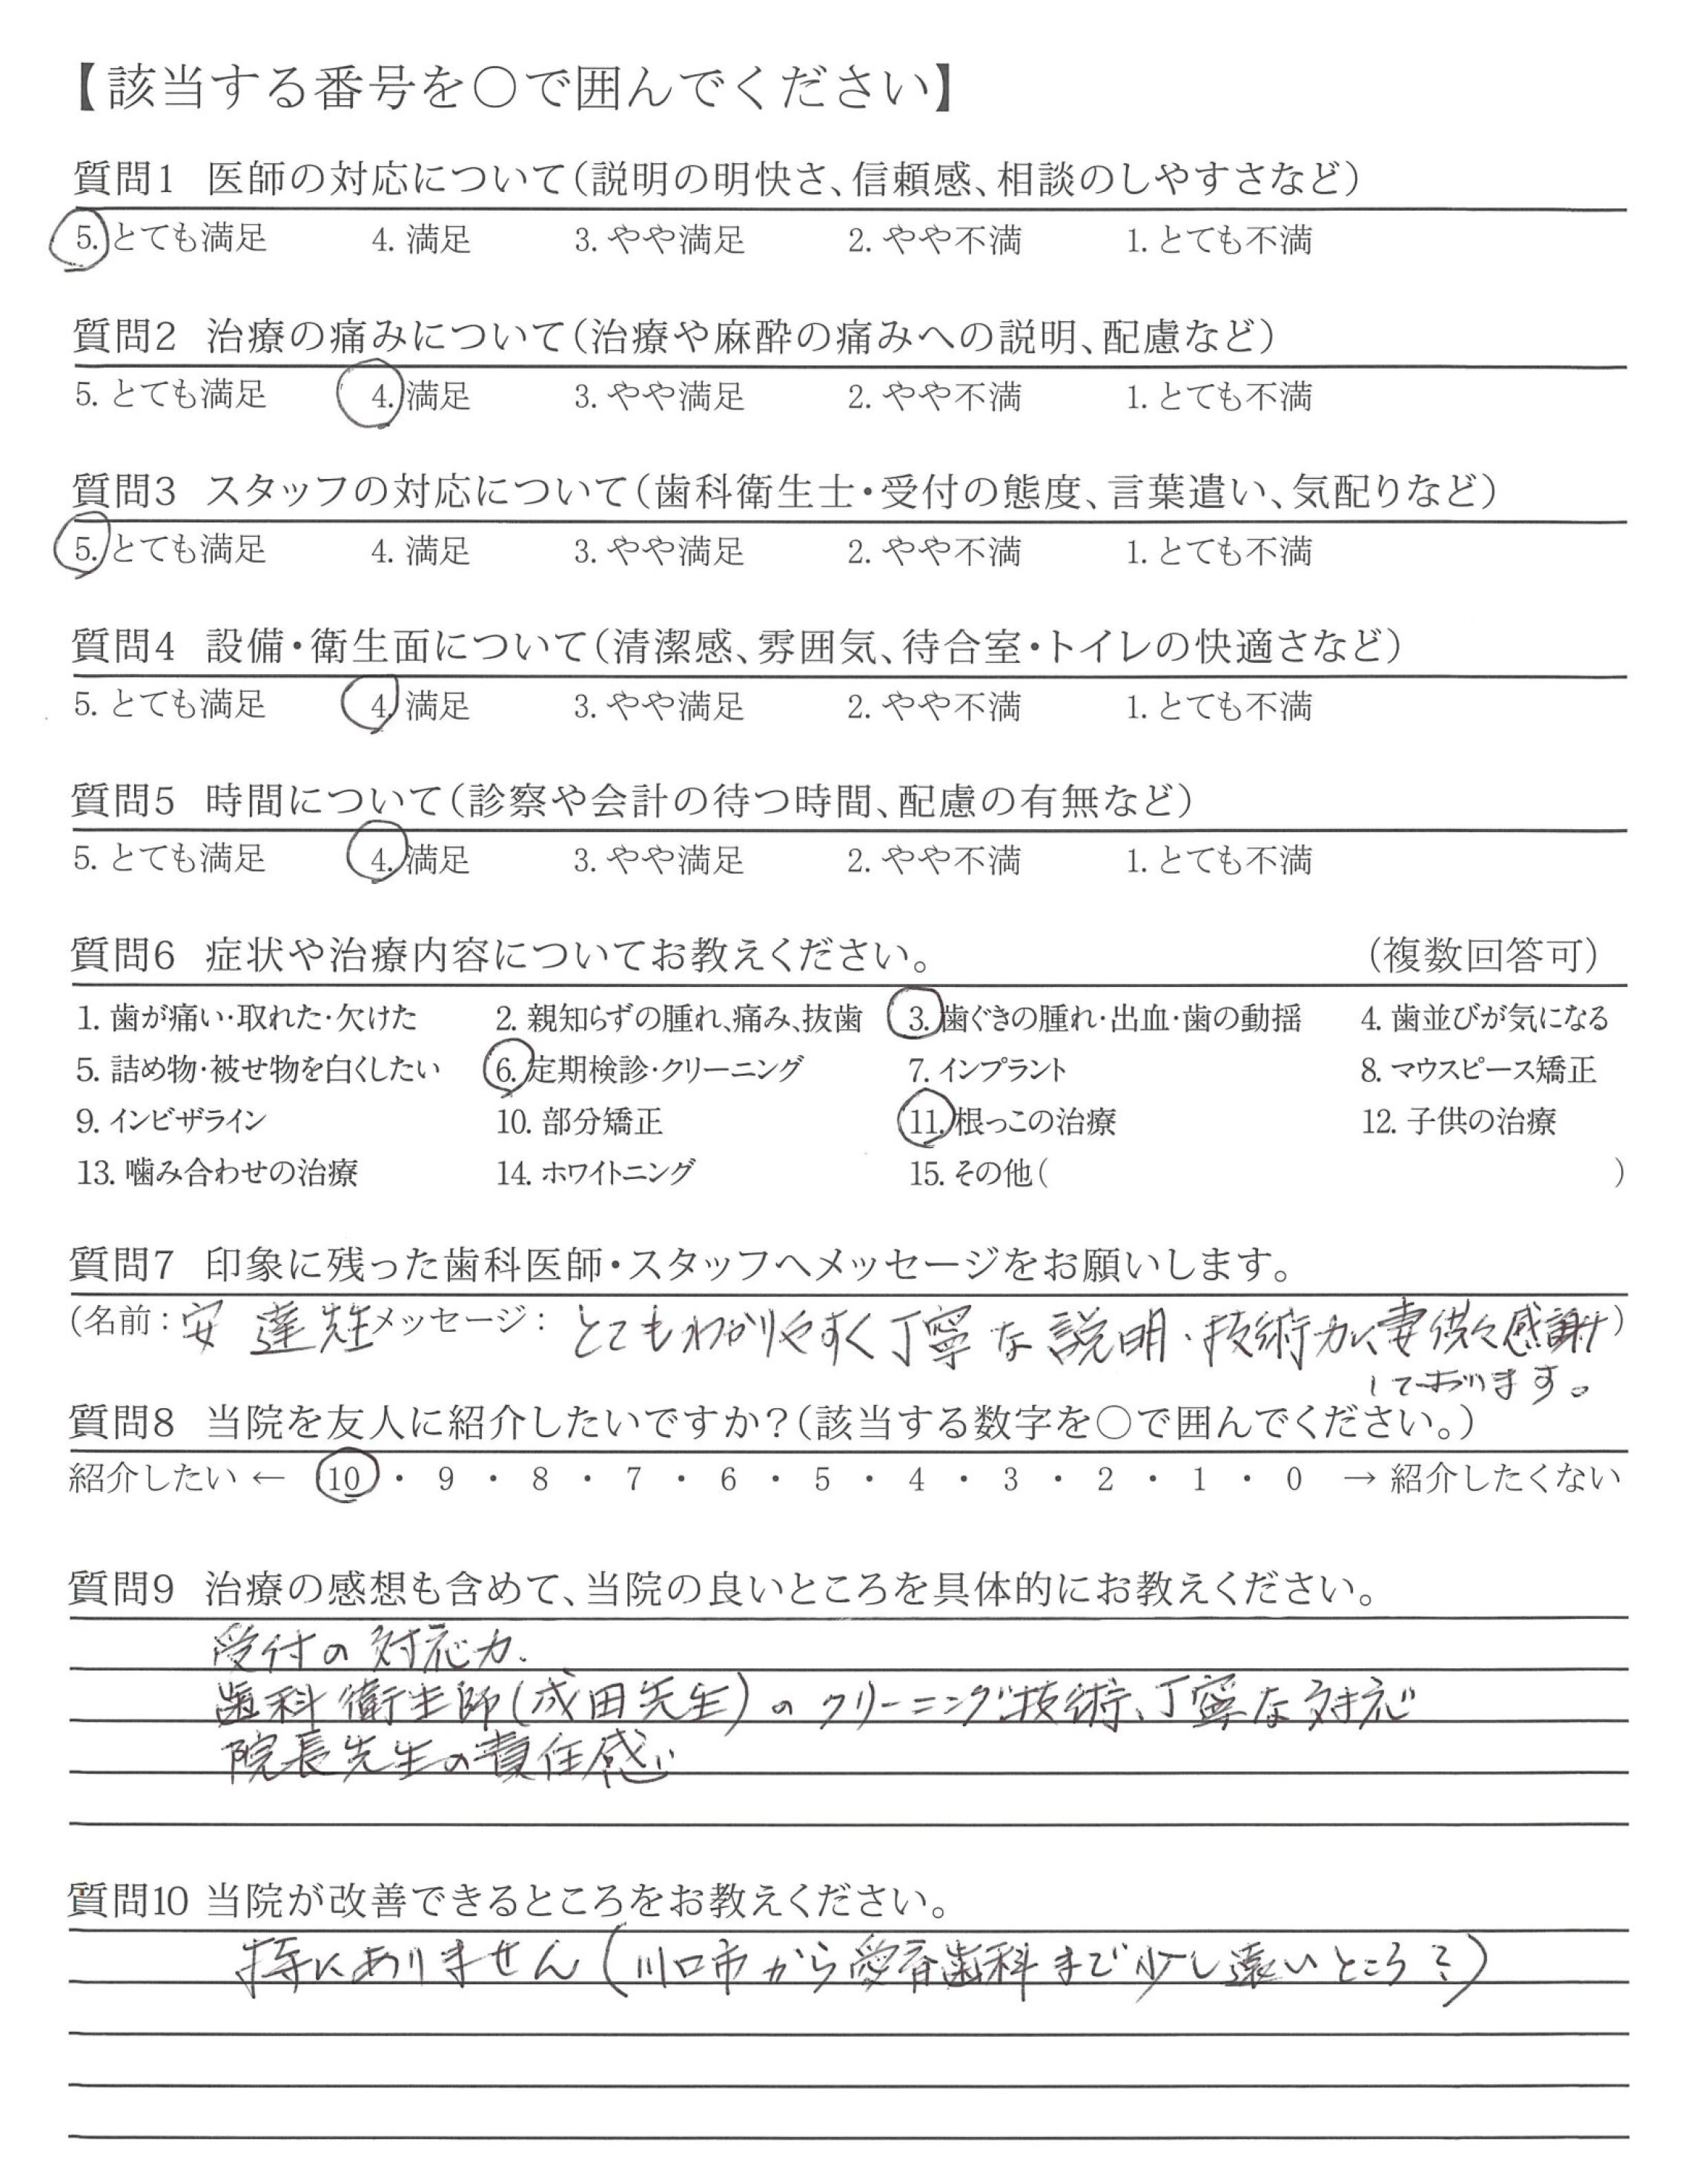 【該当する番号を〇で囲んでください】
質問1 医師の対応について(説明の明快さ、信頼感、相談のしやすさなど)
5. とても満足 4. 満足 3. やや満足 2. やや不満 1. とても不満
質問2 治療の痛みについて(治療や麻酔の痛みへの説明、配慮など)
5. とても満足 4. 満足 3. やや満足 2. やや不満 1. とても不満
質問3 スタッフの対応について(歯科衛生士・受付の態度、言葉遣い、気配りなど)
5. とても満足 4. 満足 3. やや満足 2. やや不満 1. とても不満
質問4 設備・衛生面について(清潔感、雰囲気、待合室・トイレの快適さなど)
5. とても満足 4. 満足 3. やや満足 2. やや不満 1. とても不満
質問5 時間について(診察や会計の待つ時間、配慮の有無など)
5. とても満足 4. 満足 3. やや満足 2. やや不満 1. とても不満
質問6 症状や治療内容についてお教えください。 (複数回答可)
1. 歯が痛い・取れた・欠けた 2. 親知らずの腫れ、痛み、抜歯 3. 歯ぐきの腫れ・出血・歯の動揺 4. 歯並びが気になる
5. 詰め物・被せ物を白くしたい 6. 定期検診・クリーニング 7. インプラント 8. マウスピース矯正
9. インビザライン 10. 部分矯正 11. 根っこの治療 12. 子供の治療
13. 噛み合わせの治療 14. ホワイトニング 15. その他( )
質問7 印象に残った歯科医師・スタッフへメッセージをお願いします。
(名前：安達先生 メッセージ：とてもわかりやすく丁寧な説明・技術力に妻共々感謝)
しております。
質問8 当院を友人に紹介したいですか？(該当する数字を〇で囲んでください。)
紹介したい ← 10 ・ 9 ・ 8 ・ 7 ・ 6 ・ 5 ・ 4 ・ 3 ・ 2 ・ 1 ・ 0 → 紹介したくない
質問9 治療の感想も含めて、当院の良いところを具体的にお教えください。
受付の対応力.
歯科衛生師(成田先生)のクリーニング技術、丁寧な対応
院長先生の責任感
質問10 当院が改善できるところをお教えください。
特にありません(川口市から愛香歯科まで少し遠いところ?)